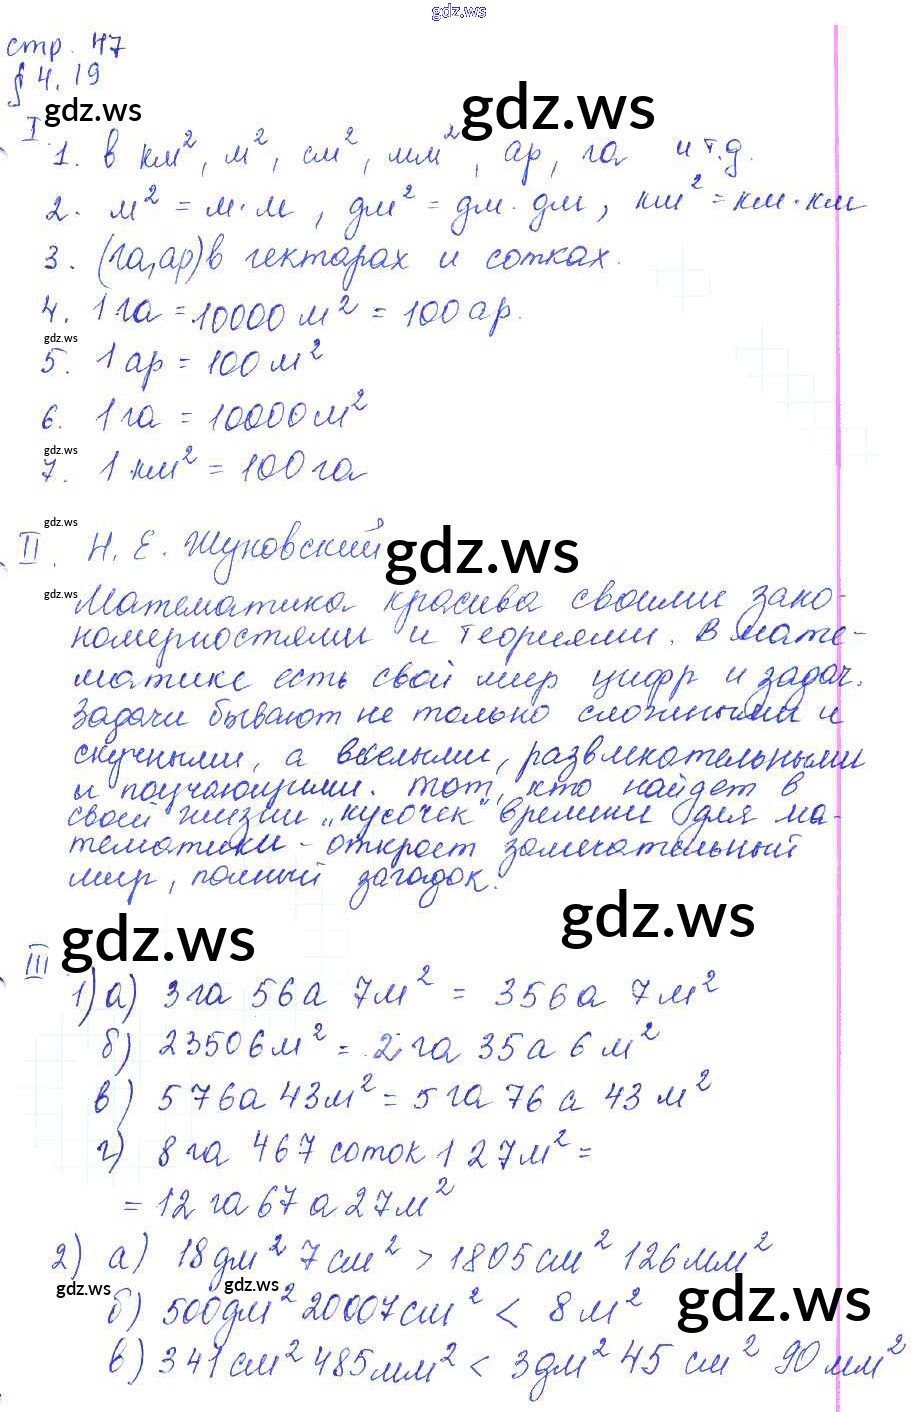 gdz.ws
стр. 47
§ 4.19
gdz.ws
gdz.ws
I
1. в км², м², см², мм², ар, га и т.д.
2. м² = м·м, дм² = дм·дм, км² = км·км
3. (га, ар) в гектарах и сотках.
4. 1 га = 10000 м² = 100 ар.
gdz.ws
5. 1 ар = 100 м²
6. 1 га = 10000 м²
gdz.ws
7. 1 км² = 100 га
gdz.ws
II. Н. Е. Жуковский
gdz.ws
gdz.ws
Математика красива своими зако-
номерностями и теориями. В мате-
матике есть свой мир цифр и задач.
Задачи бывают не только сложными и
скучными, а веселыми, развлекательными
и поучающими. Тот, кто найдет в
своей жизни „кусочек" времени для ма-
тематики - откроет замечательный
мир, полный загадок.
gdz.ws
gdz.ws
III
1) а) 3 га 56 а 7 м² = 356 а 7 м²
б) 23506 м² = 2 га 35 а 6 м²
в) 576 а 43 м² = 5 га 76 а 43 м²
г) 8 га 467 соток 127 м² =
= 12 га 67 а 27 м²
2) а) 18 дм² 7 см² > 1805 см² 126 мм²
gdz.ws
gdz.ws
gdz.ws
б) 500 дм² 20007 см² < 8 м²
в) 341 см² 485 мм² < 3 дм² 45 см² 90 мм²